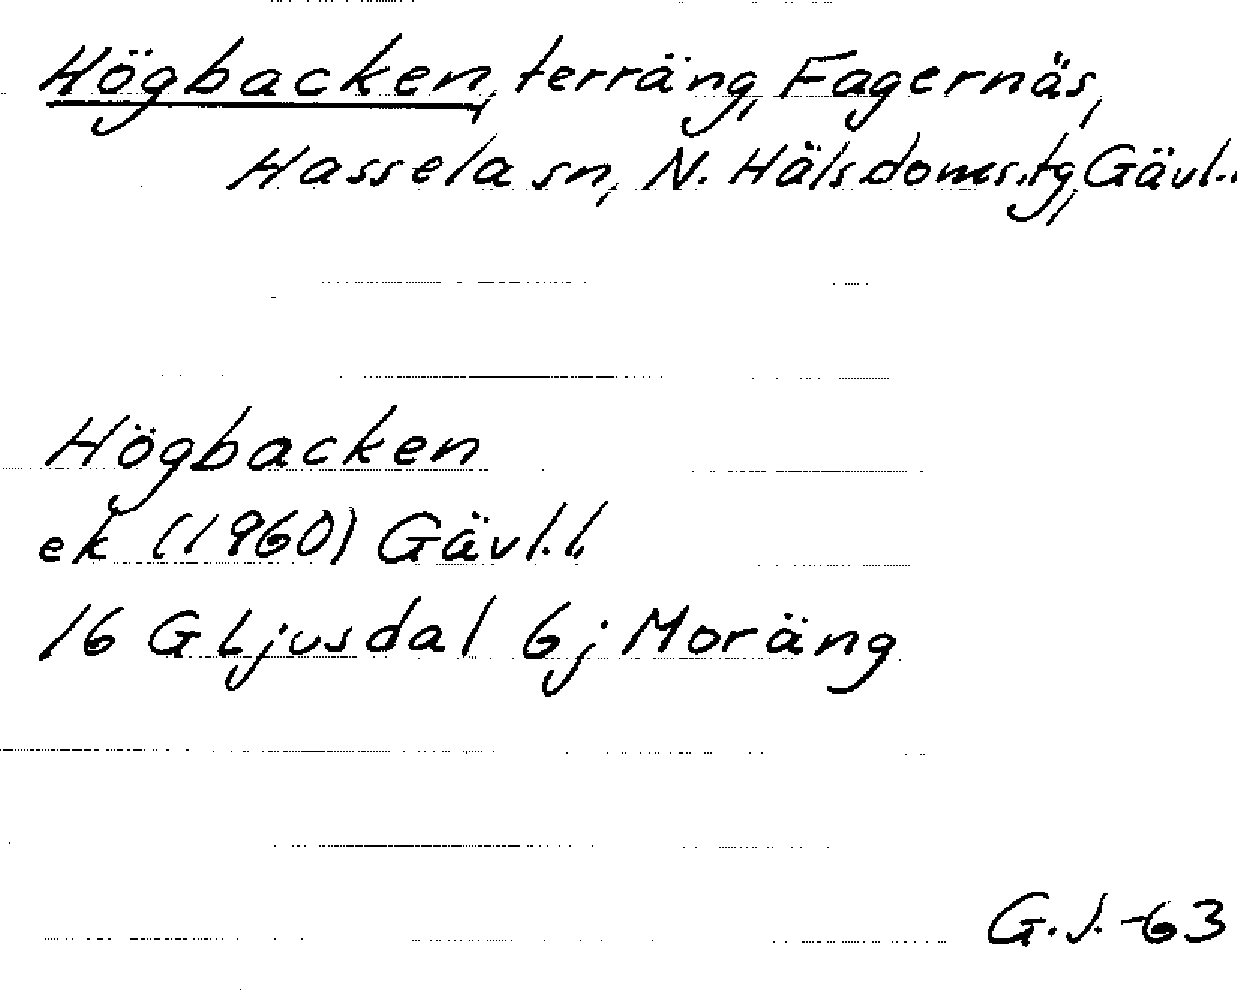 Högbacken, terräng, Fagernäs,
Hassela sn, N. Häls.doms.tg, Gävl..
Högbacken
ek (1960) Gävl.l.
16 G Ljusdal 6j Moräng
G.J.-63